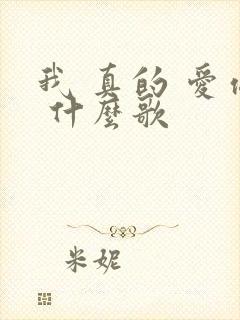 我真的愛你
什麼歌
米妮